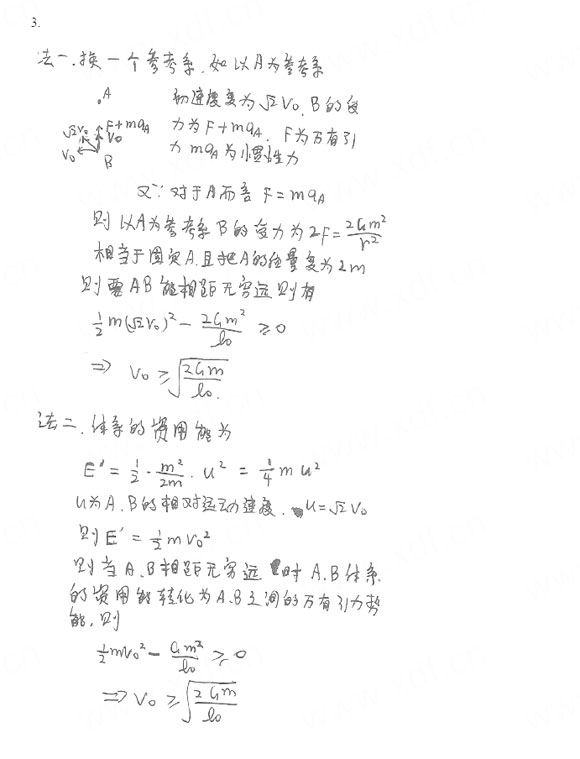 3.
法一.换一个参考系.如以A为参考系
A 初速度变为√2V₀, B的受
√2V₀ F+ma_A 力为F+ma_A, F为万有引
V₀ V₀ B 力 ma_A为惯性力
又∵对于A而言 F=ma_A
则以A为参考系B的受力为2F=2Gm²/r²
相当于固定A,且把A的质量变为2m
则要AB能相距无穷远则有
½m(√2V₀)² - 2Gm²/l₀ ≥0
⇒ V₀≥√(2Gm/l₀).
法二.体系的资用能为
E'=½·m²/2m·u²=¼mu²
u为A.B的相对运动速度. u=√2V₀
则E'=½mV₀²
则当A.B相距无穷远时A.B体系
的资用能转化为A.B之间的万有引力势
能.则
½mV₀² - Gm²/l₀ ≥0
⇒V₀≥√(2Gm/l₀)
www.xdf.cn